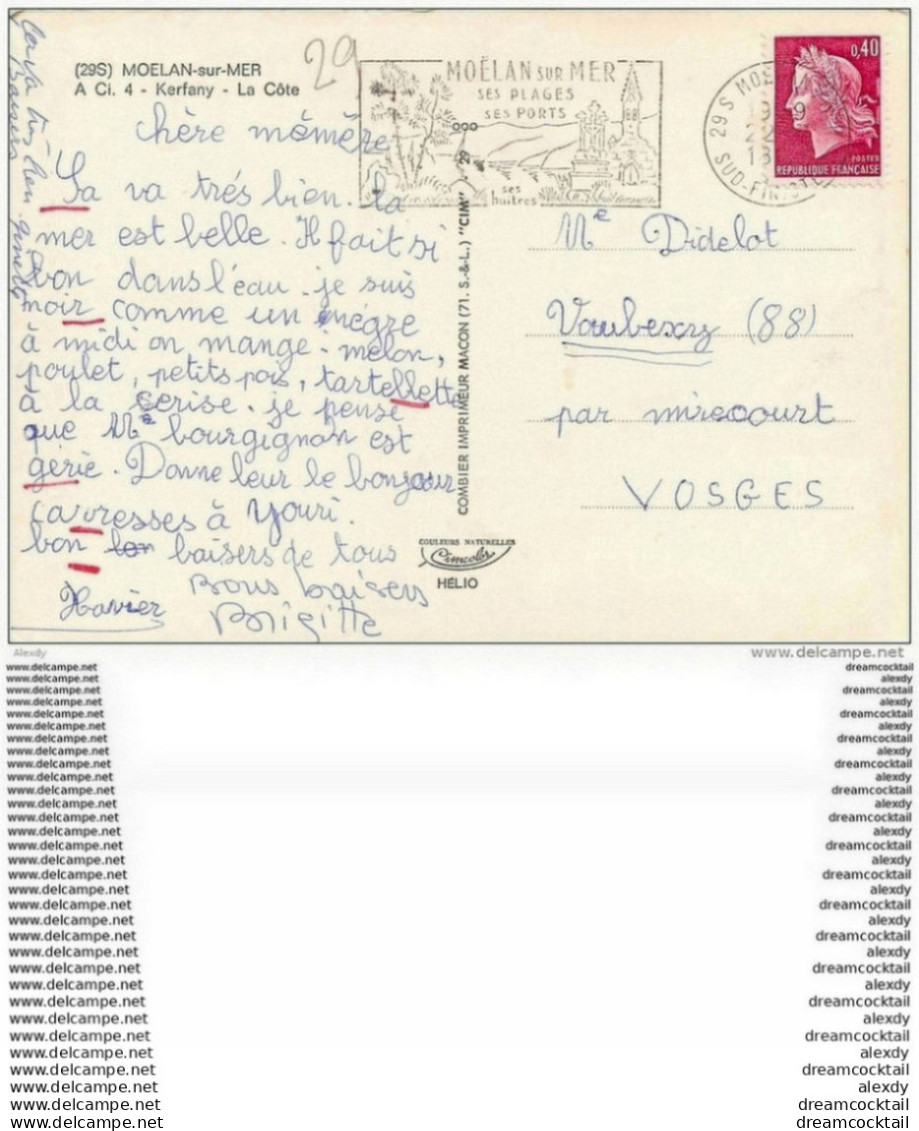 (29S) MOELAN-sur-MER
A Ci. 4 - Kerfany - La Côte
29
MOËLAN SUR MER
SES PLAGES
SES PORTS
ses
huîtres
29
29S MOE
SUD-FINIST
0,40
POSTES
REPUBLIQUE FRANÇAISE
chère mémère
Sa va trés bien. la
mer est belle. Il fait si
bon dans l'eau. je suis
noir comme un nègre
à midi on mange. melon,
poulet, petits pois, tartellette
à la cerise. je pense
que Me bourgignon est
gérie. Donne leur le bonjour
carresses à Youri.
bon baisers de tous
Xavier
Bons baisers
Brigitte
ça va très bien
Baisers
COMBIER IMPRIMEUR MACON (71. S.-&-L.) "CIM"
COULEURS NATURELLES
Cimcolor
HÉLIO
Me Didelot
Vaubexy (88)
par mirecourt
VOSGES
Alexdy
www.delcampe.net
www.delcampe.net
dreamcocktail
www.delcampe.net
alexdy
www.delcampe.net
dreamcocktail
www.delcampe.net
alexdy
www.delcampe.net
dreamcocktail
www.delcampe.net
alexdy
www.delcampe.net
dreamcocktail
www.delcampe.net
alexdy
www.delcampe.net
dreamcocktail
www.delcampe.net
alexdy
www.delcampe.net
dreamcocktail
www.delcampe.net
alexdy
www.delcampe.net
dreamcocktail
www.delcampe.net
alexdy
www.delcampe.net
dreamcocktail
www.delcampe.net
alexdy
www.delcampe.net
dreamcocktail
www.delcampe.net
alexdy
www.delcampe.net
dreamcocktail
www.delcampe.net
alexdy
www.delcampe.net
dreamcocktail
www.delcampe.net
alexdy
www.delcampe.net
dreamcocktail
www.delcampe.net
alexdy
www.delcampe.net
dreamcocktail
www.delcampe.net
alexdy
www.delcampe.net
dreamcocktail
www.delcampe.net
alexdy
www.delcampe.net
dreamcocktail
www.delcampe.net
alexdy
www.delcampe.net
dreamcocktail
www.delcampe.net
dreamcocktail